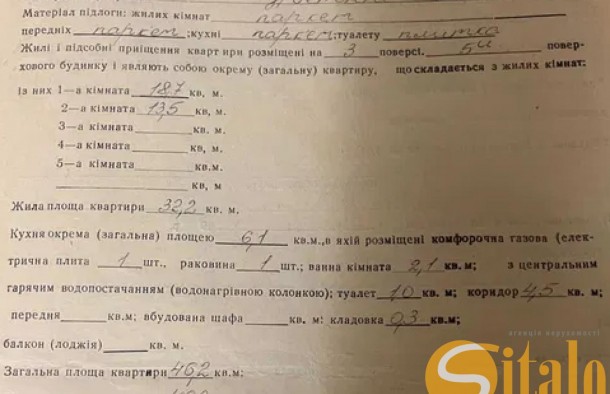 Матеріал підлоги: жилих кімнат паркет
передніх паркет; кухні паркет; туалету плитка
Жилі і підсобні приіщення кварт при розміщені на 3 поверсі, 5и повер-
хового будинку і являють собою окрему (загальну) квартиру, що складається з жилих кімнат:
Із них 1—а кімната 18,7 кв, м.
2—а кімната 13,5 кв. м.
3—а кімната кв. м.
4—а кімната кв, м.
5—а кімната кв.м.
кв, м
Жила площа квартири 32,2 кв. м.
Кухня окрема (загальна) площею 6,1 кв.м.,в яхій розміщені комфорочна газова (елек-
трична плита 1 шт., раковина 1 шт.; ванна кімната 2,1 кв.м; з центральним
гарячим водопостачанням (водонагрівною колонкою); туалет 1,0 кв. м; коридор 4,5 кв. м;
передня кв.м; вбудована шафа кв. м: кладовка 0,3 кв.м;
балкон (лоджія) кв. м.
Загальна площа квартири 46,2 кв.м:
агенція нерухомості
Sitalo